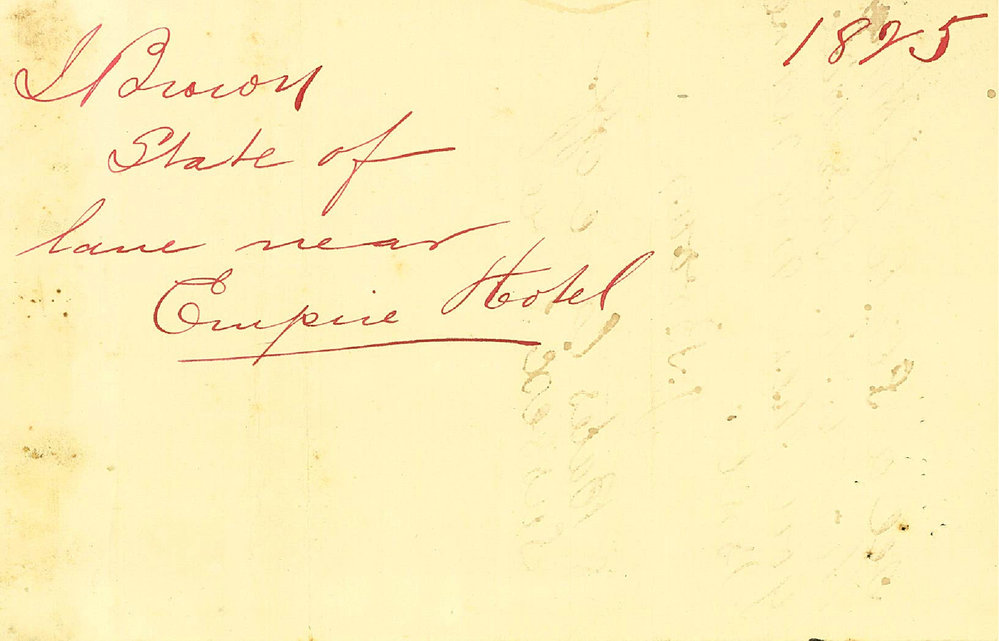 1825
J Brown
State of
lane near
Empire Hotel